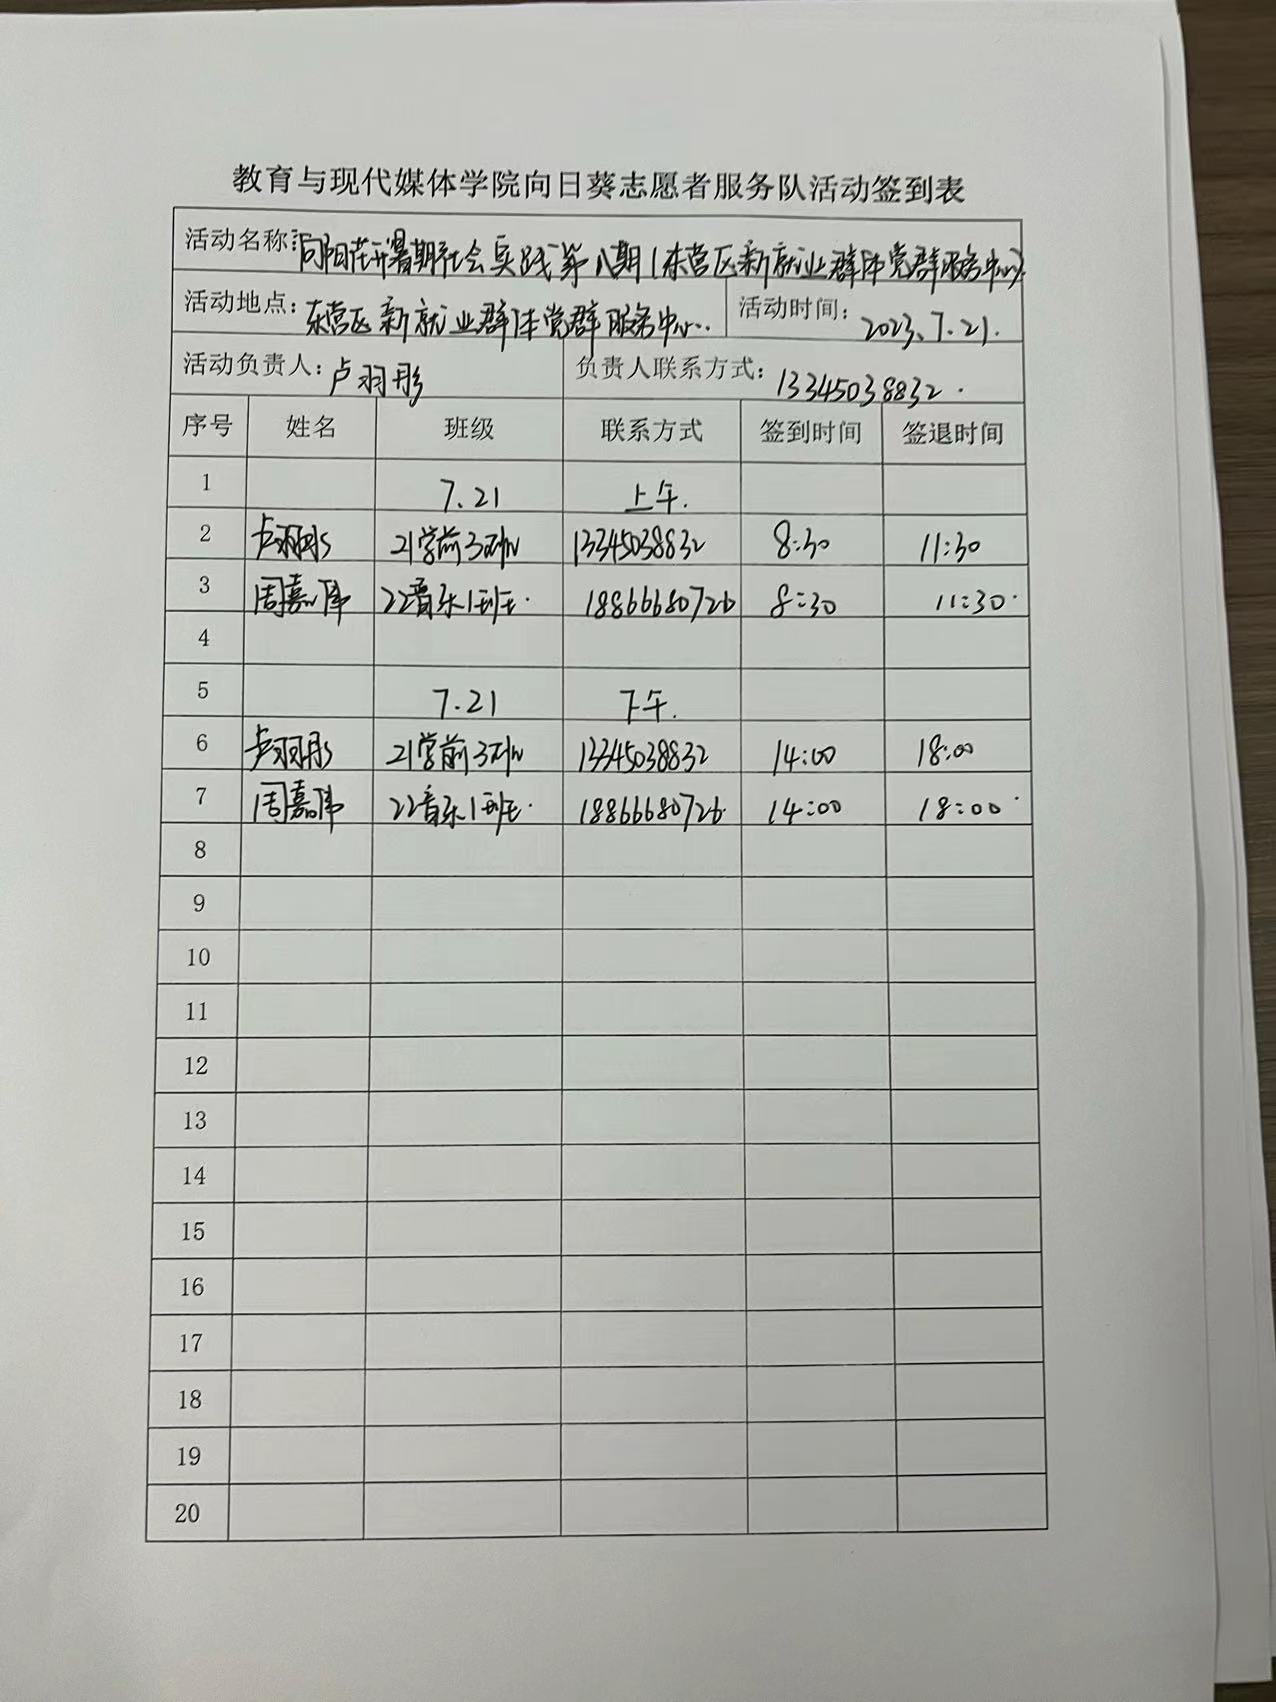 教育与现代媒体学院向日葵志愿者服务队活动签到表
活动名称：向阳花开暑期社会实践第八期(东营区新就业群体党群服务中心)
活动地点：东营区新就业群体党群服务中心. 活动时间：2023.7.21.
活动负责人：卢羽彤 负责人联系方式：13345038832.
序号 姓名 班级 联系方式 签到时间 签退时间
1 7.21 上午.
2 卢羽彤 21学前3班 13345038832 8:30 11:30
3 周嘉伟 22音乐1班. 18866680726 8:30 11:30.
4
5 7.21 下午.
6 卢羽彤 21学前3班 13345038832 14:00 18:00
7 周嘉伟 22音乐1班. 18866680726. 14:00 18:00.
8
9
10
11
12
13
14
15
16
17
18
19
20